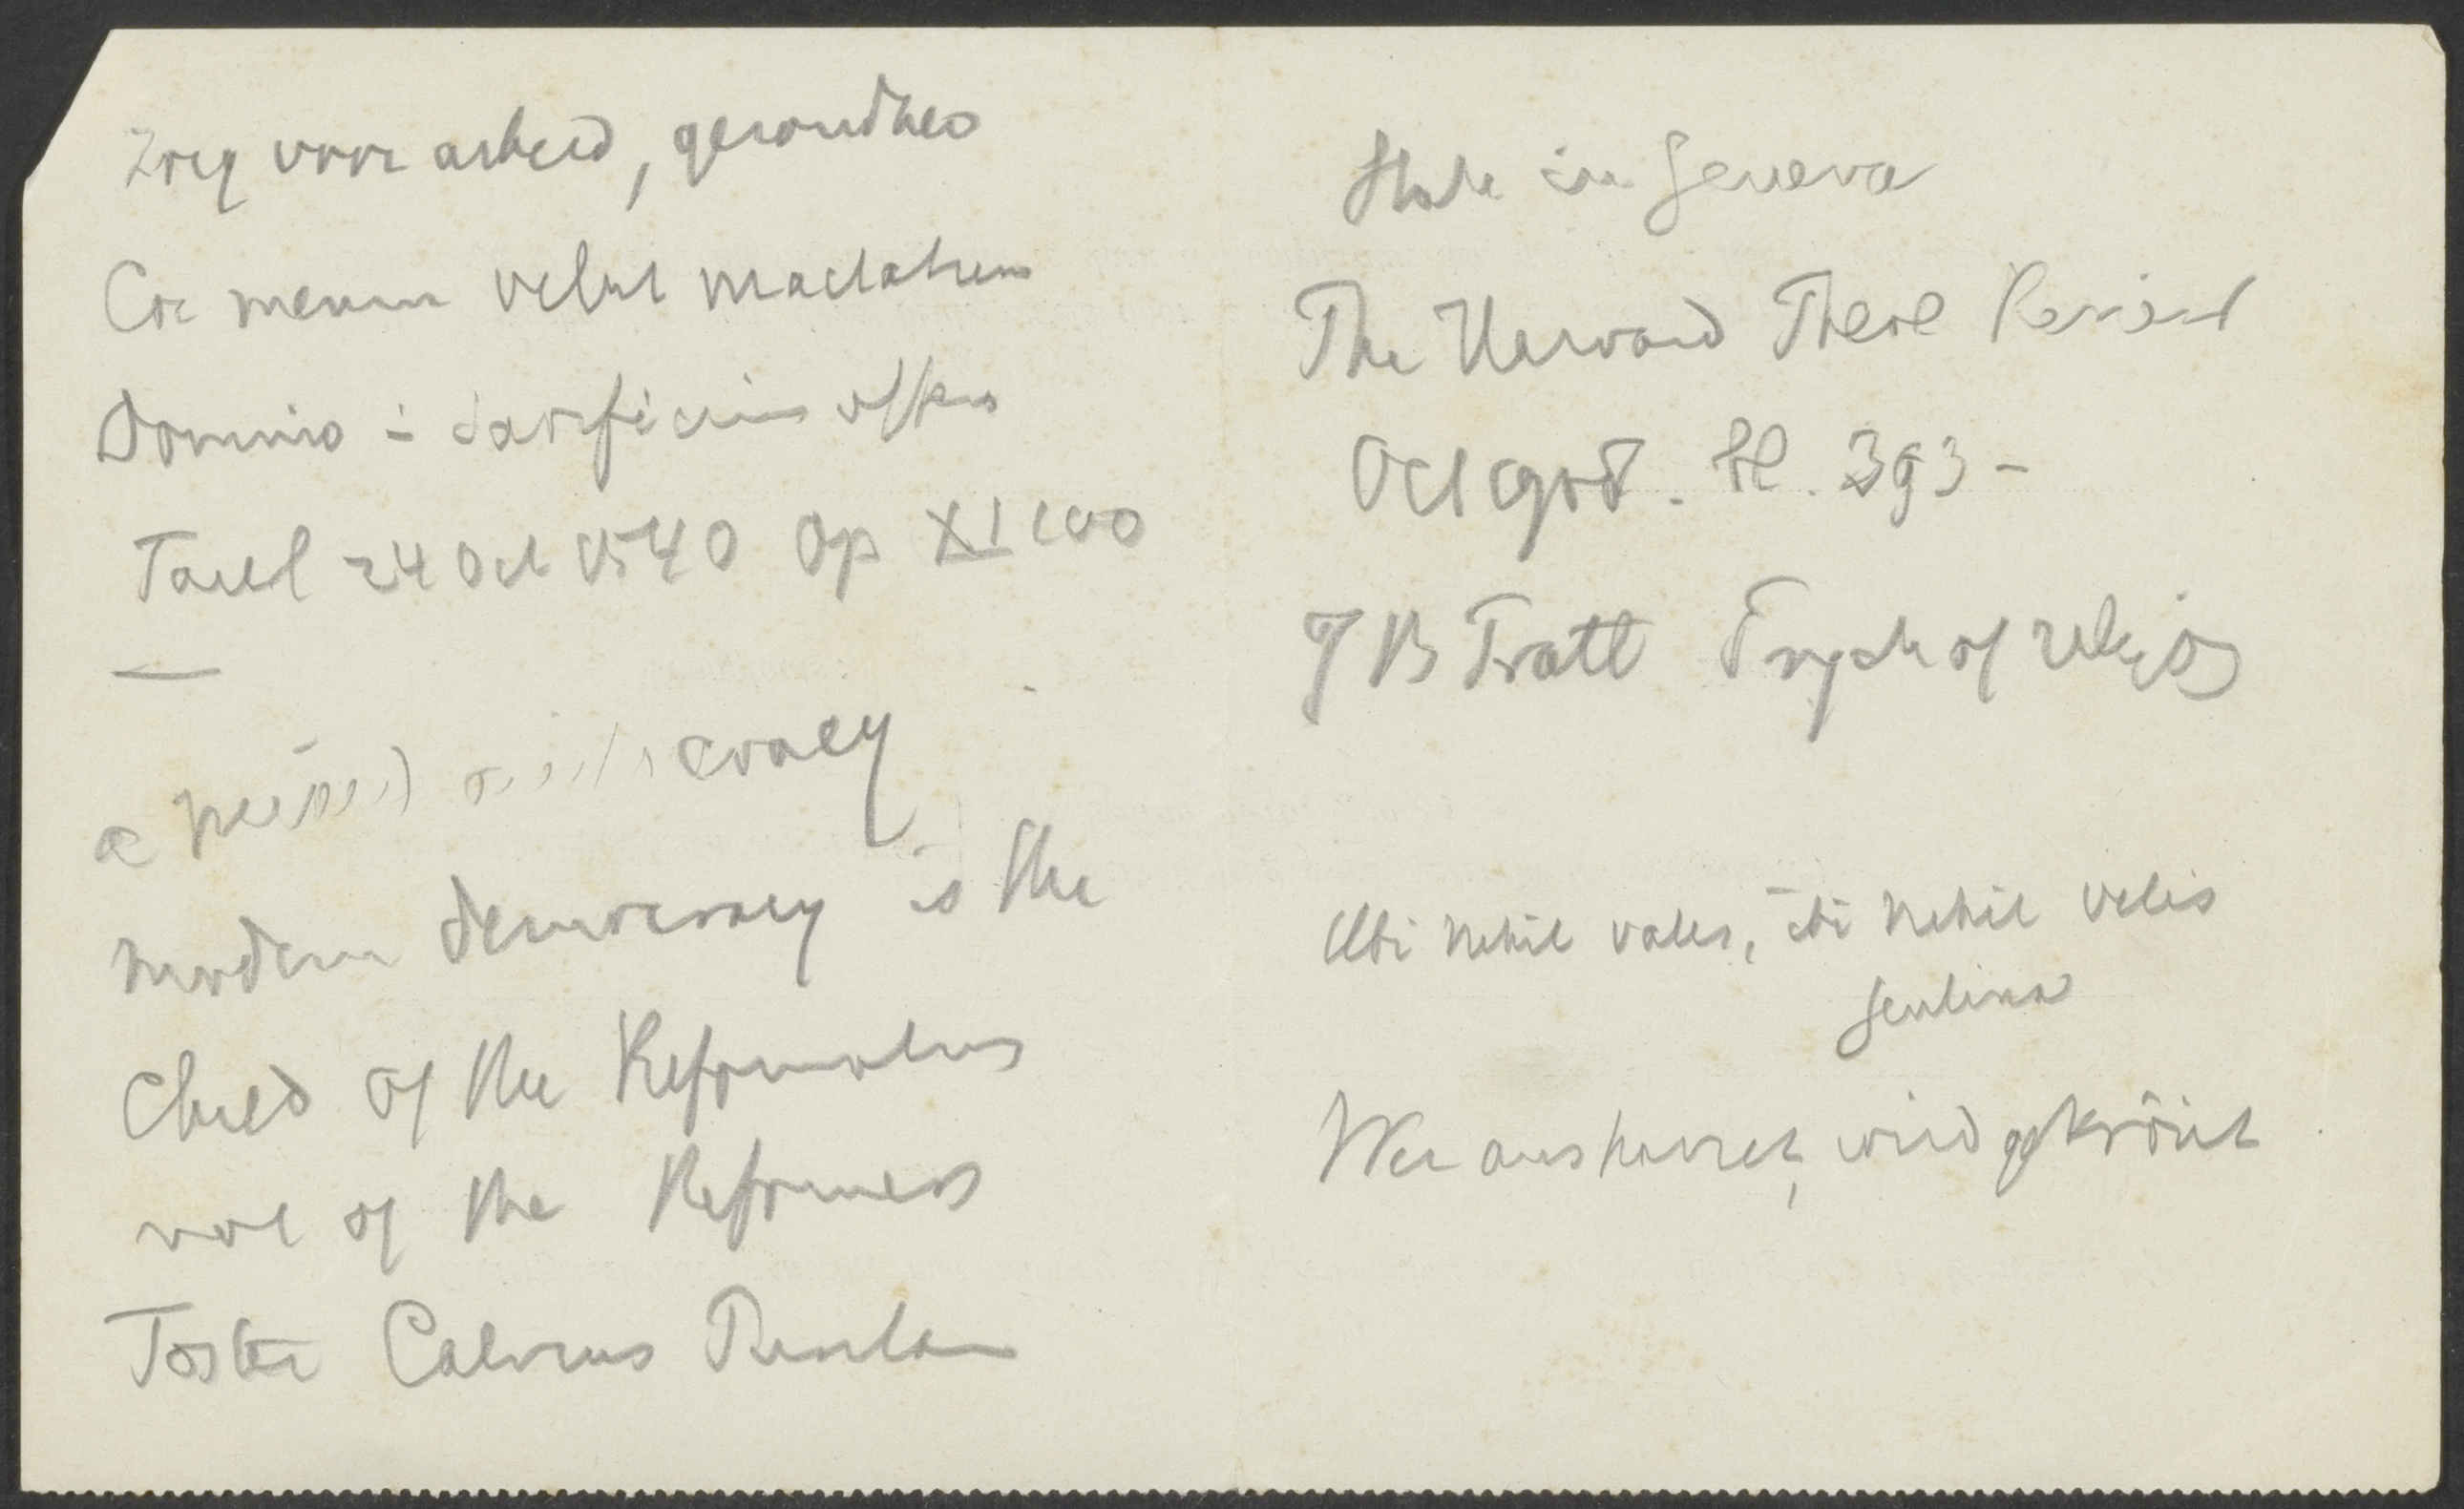 Zorg voor arbeid, gezondheid
Cor meum velut mactatum
Domino in sacrificium offero
Farel 24 Oct 1540 Op XI 100
a
modern democracy is the
child of the Reformation
not of the Reformers
Foster Calvins
State in Geneva
The Harvard Theol Review
Oct 1908. bl. 393-
J B Pratt Psych of relig
Ubi nihil vales, ibi nihil velis
Geulincx
Wer ausharret, wird gekrönt